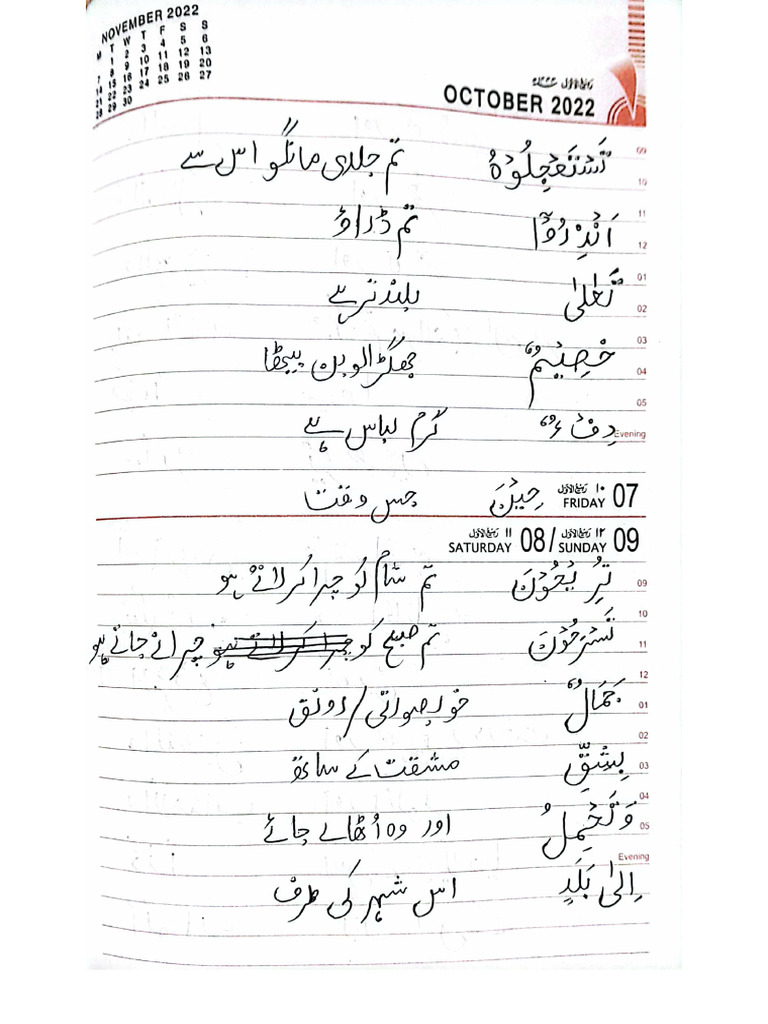 NOVEMBER 2022
M T W T F S S
1 2 3 4 5 6
7 8 9 10 11 12 13
14 15 16 17 18 19 20
21 22 23 24 25 26 27
28 29 30
ربیع الاول
OCTOBER 2022
09
تَسْتَعْجِلُوْهُ تم جلدی مانگو اس سے
10
11
اَنْذِرُوْۤا تم ڈراؤ
12
01
تَعٰلٰی بلند تر ہے
02
03
خَصِیْمٌ جھگڑالو بن بیٹھا
04
05
دِفْءٌ گرم لباس ہے
Evening
حِیْنَ جس وقت
07 FRIDAY ١٠ ربیع الاول
09 SUNDAY ١٢ ربیع الاول / 08 SATURDAY ١١ ربیع الاول
09
تُرِیْحُوْنَ تم شام کو چرا کر لاتے ہو
10
تَسْرَحُوْنَ تم صبح کو چرا کر لاتے ہو چرانے جاتے ہو
11
12
جَمَالٌ خوبصورتی / رونق
01
02
بِشِقِّ مشقت کے ساتھ
03
04
وَتَحْمِلُ اور وہ اُٹھالے جائے
05
Evening
اِلٰی بَلَدٍ اس شہر کی طرف